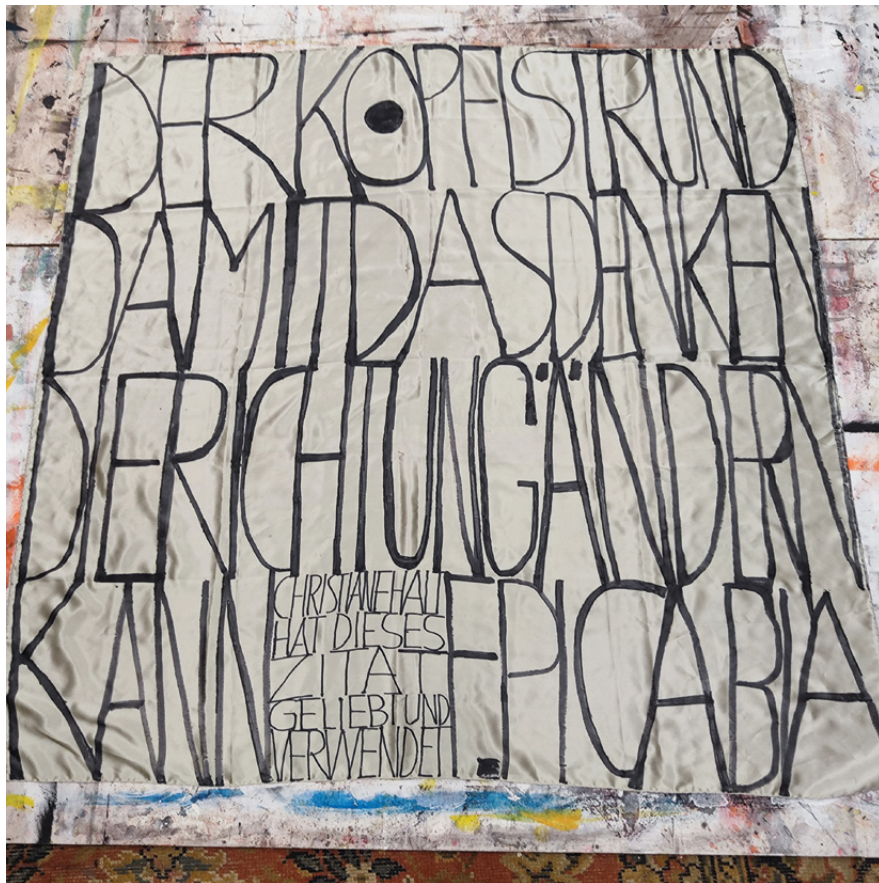 DER KOPF IST RUND
DAMIT DAS DENKEN
DIE RICHTUNG ÄNDERN
KANN
CHRISTIANE
HAT DIESES
ZITAT
GELIEBT UND
VERWENDET
F. PICABIA